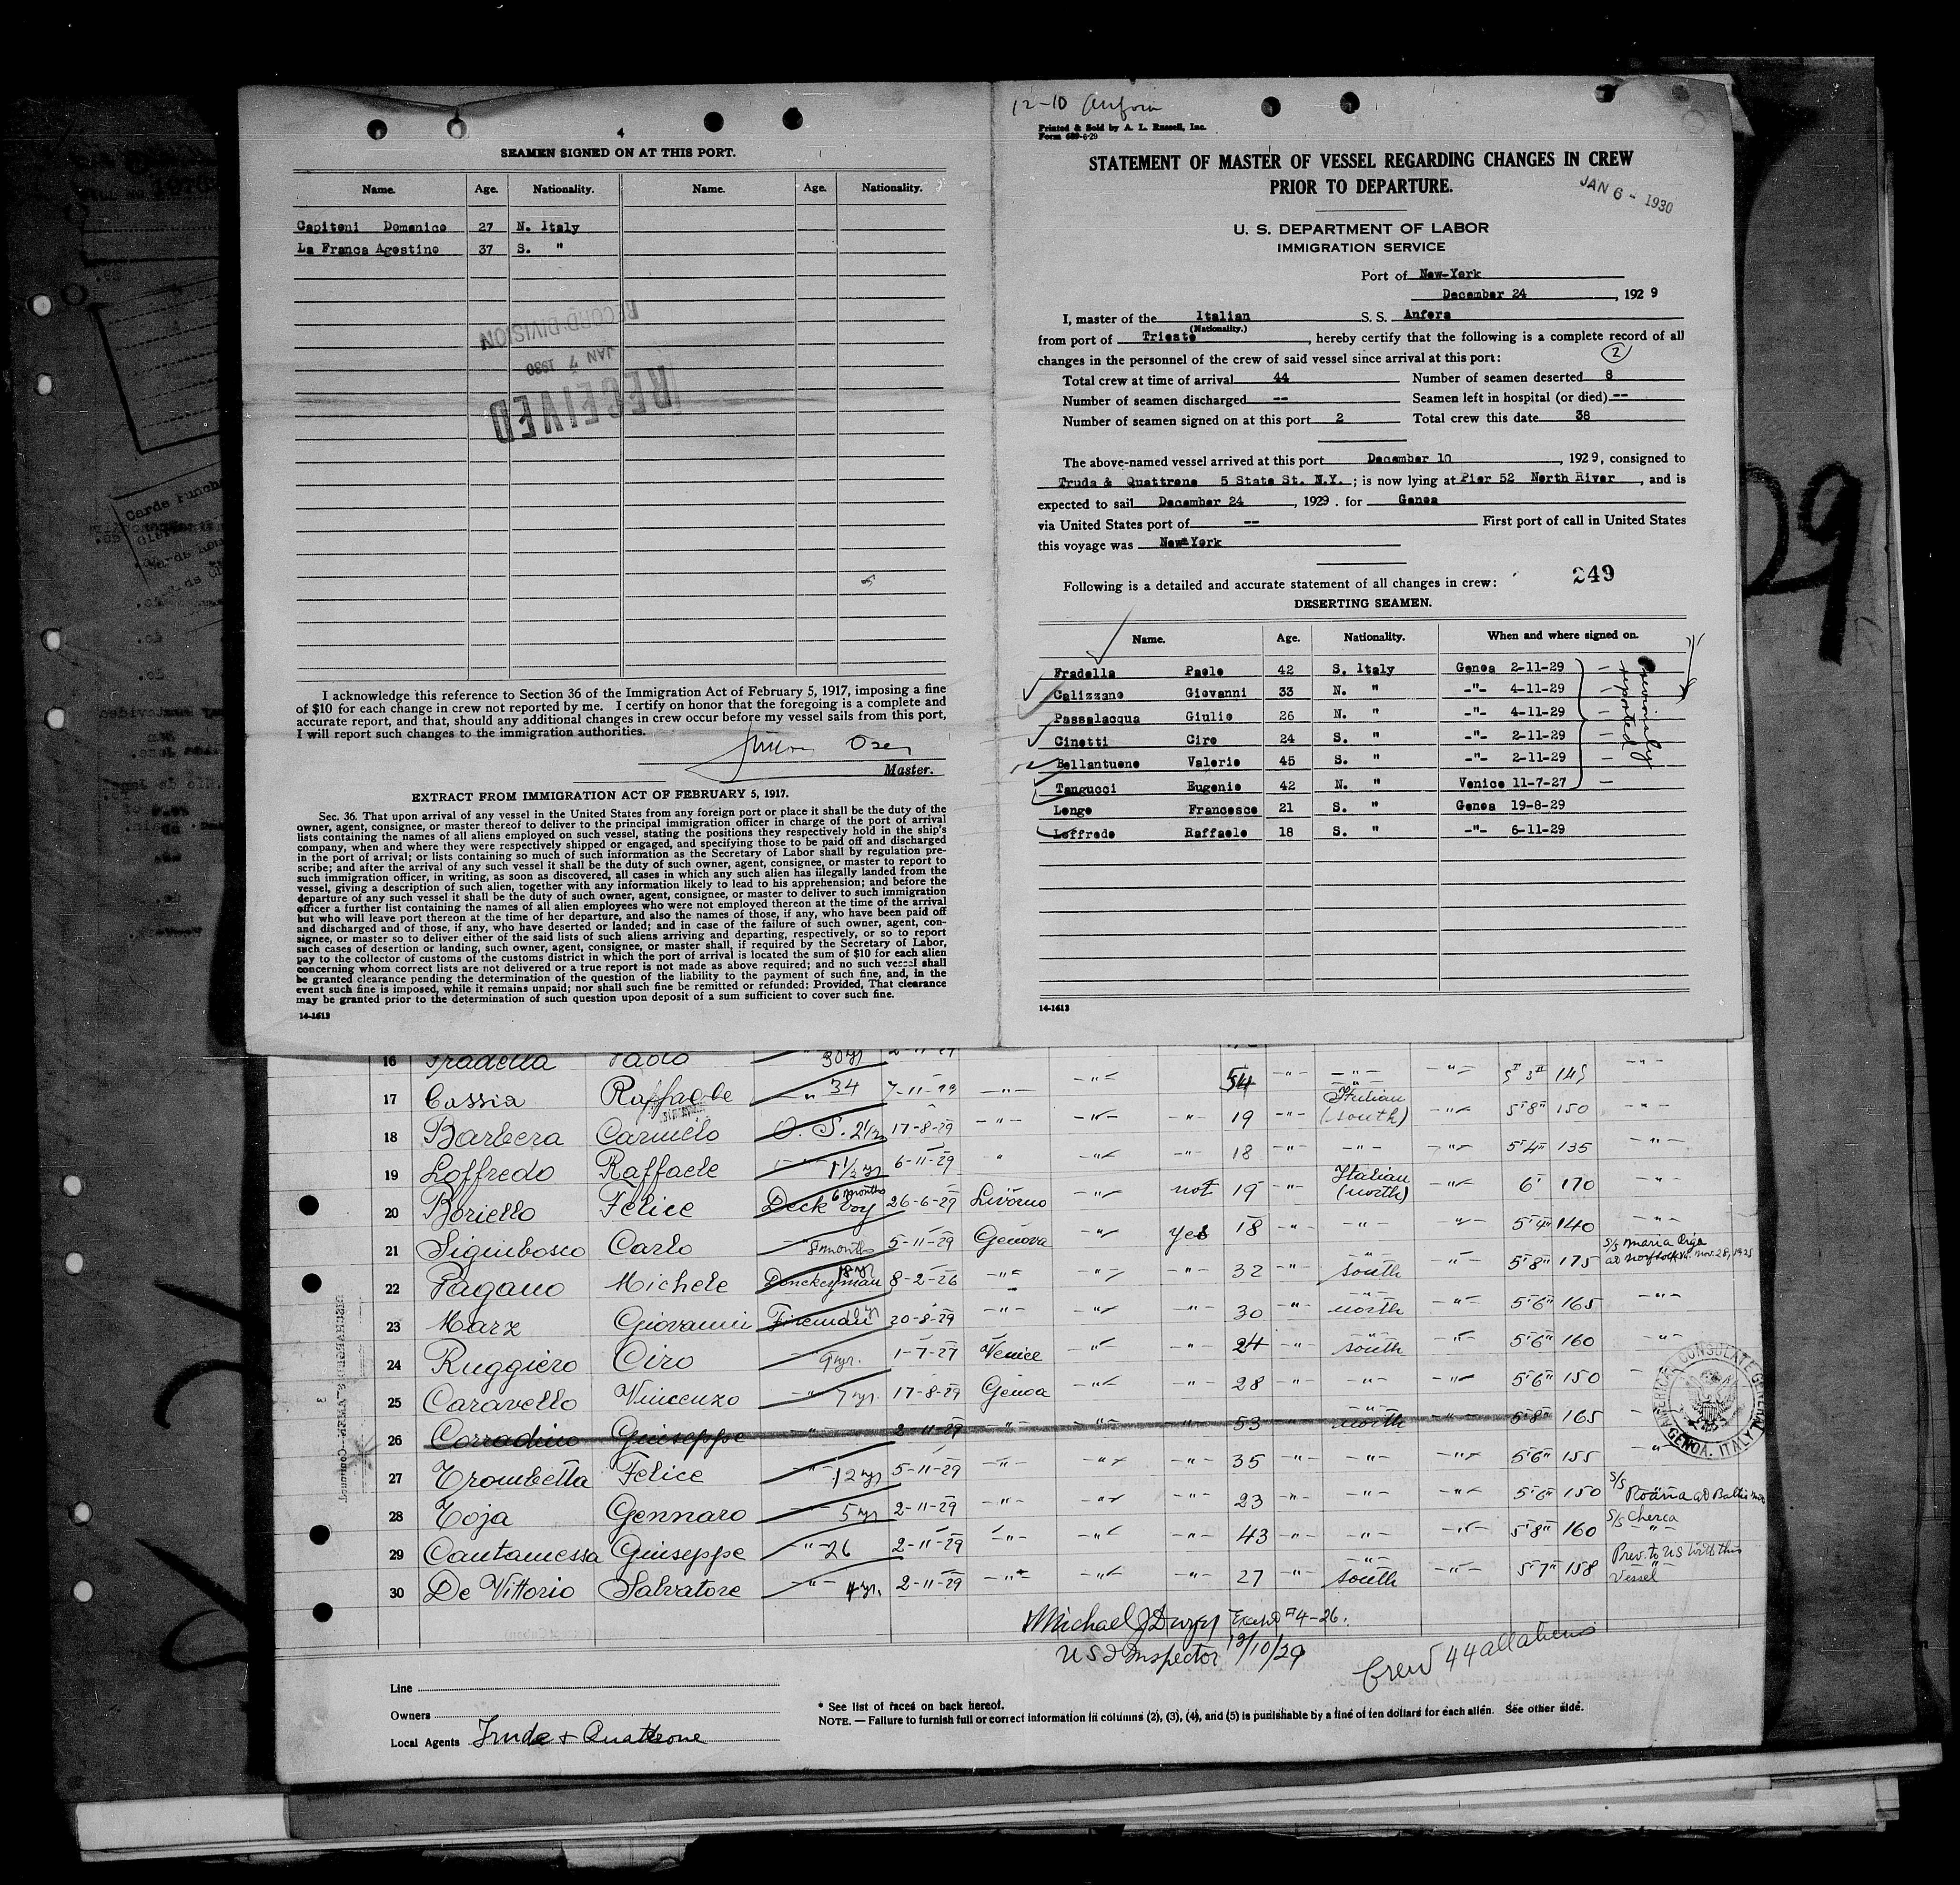 4
SEAMEN SIGNED ON AT THIS PORT.
Name. Age. Nationality. Name. Age. Nationality.
Capiteni Domenico 27 N. Italy
La Franca Agostino 37 S. "
RECORD DIVISION
JAN 7 1930
RECEIVED
I acknowledge this reference to Section 36 of the Immigration Act of February 5, 1917, imposing a fine
of $10 for each change in crew not reported by me. I certify on honor that the foregoing is a complete and
accurate report, and that, should any additional changes in crew occur before my vessel sails from this port,
I will report such changes to the immigration authorities.
Master.
EXTRACT FROM IMMIGRATION ACT OF FEBRUARY 5, 1917.
Sec. 36. That upon arrival of any vessel in the United States from any foreign port or place it shall be the duty of the
owner, agent, consignee, or master thereof to deliver to the principal immigration officer in charge of the port of arrival
lists containing the names of all aliens employed on such vessel, stating the positions they respectively hold in the ship's
company, when and where they were respectively shipped or engaged, and specifying those to be paid off and discharged
in the port of arrival; or lists containing so much of such information as the Secretary of Labor shall by regulation pre-
scribe; and after the arrival of any such vessel it shall be the duty of such owner, agent, consignee, or master to report to
such immigration officer, in writing, as soon as discovered, all cases in which any such alien has illegally landed from the
vessel, giving a description of such alien, together with any information likely to lead to his apprehension; and before the
departure of any such vessel it shall be the duty of such owner, agent, consignee, or master to deliver to such immigration
officer a further list containing the names of all alien employees who were not employed thereon at the time of the arrival
but who will leave port thereon at the time of her departure, and also the names of those, if any, who have been paid off
and discharged and of those, if any, who have deserted or landed; and in case of the failure of such owner, agent, con-
signee, or master so to deliver either of the said lists of such aliens arriving and departing, respectively, or so to report
such cases of desertion or landing, such owner, agent, consignee, or master shall, if required by the Secretary of Labor,
pay to the collector of customs of the customs district in which the port of arrival is located the sum of $10 for each alien
concerning whom correct lists are not delivered or a true report is not made as above required; and no such vessel shall
be granted clearance pending the determination of the question of the liability to the payment of such fine, and, in the
event such fine is imposed, while it remains unpaid; nor shall such fine be remitted or refunded: Provided, That clearance
may be granted prior to the determination of such question upon deposit of a sum sufficient to cover such fine.
14-1613
12-10 Anfora
Printed & Sold by A. L. Russell, Inc.
Form 689-6-29
STATEMENT OF MASTER OF VESSEL REGARDING CHANGES IN CREW
PRIOR TO DEPARTURE.
JAN 6 - 1930
U. S. DEPARTMENT OF LABOR
IMMIGRATION SERVICE
Port of New-York
December 24, 1929
I, master of the Italian S. S. Anfora
(Nationality.)
from port of Trieste, hereby certify that the following is a complete record of all
changes in the personnel of the crew of said vessel since arrival at this port:
2
Total crew at time of arrival 44 Number of seamen deserted 8
Number of seamen discharged -- Seamen left in hospital (or died) --
Number of seamen signed on at this port 2 Total crew this date 38
The above-named vessel arrived at this port December 10, 1929, consigned to
Truda & Quattrone 5 State St. N.Y.; is now lying at Pier 52 North River, and is
expected to sail December 24, 1929. for Genoa
via United States port of -- First port of call in United States
this voyage was New York
Following is a detailed and accurate statement of all changes in crew:
249
DESERTING SEAMEN.
Name. Age. Nationality. When and where signed on.
Fradella Paolo 42 S. Italy Genoa 2-11-29 —
Calizzano Giovanni 33 N. " -"- 4-11-29 —
Passalacqua Giulio 26 N. " -"- 4-11-29 —
Cinetti Ciro 24 S. " -"- 2-11-29 —
Bellantuono Valerio 45 S. " -"- 2-11-29 —
Tangucci Eugenio 42 N. " Venice 11-7-27 —
Longo Francesco 21 S. " Genoa 19-8-29
Loffredo Raffaele 18 S. " -"- 6-11-29
previously reported
14-1613
16 Fradella Paolo 30 yr 2-11-29
17 Cassia Raffaele -"- 34 7-11-29 -"- -"- 54 -"- -"- -"- 5' 3" 145 -"-
18 Barbera Carmelo O. S. 2 1/2 17-8-29 -"- -"- -"- 19 -"- Italian (south) -"- 5'8" 150 -"-
19 Loffredo Raffaele -"- 1 1/2 yr 6-11-29 " -"- -"- 18 -"- -"- -"- 5'4" 135 -"-
20 Boriello Felice Deck boy 6 months 26-6-29 Livorno -"- not 19 -"- Italian (north) -"- 6' 170 -"-
21 Sigimbosco Carlo 8 months 5-11-29 Genova -"- yes 18 -"- -"- -"- 5'4" 140 -"-
22 Pagano Michele Donckeyman 18 yr 8-2-26 -"- -"- -"- 32 -"- south -"- 5'8" 175 S/S Maria Riga at Norfolk Va. Nov. 28, 1925
23 Marz Giovanni Fireman 10 yr 20-8-29 -"- -"- -"- 30 -"- north -"- 5'6" 165 -"-
24 Ruggiero Ciro 9 yr. 1-7-27 Venice -"- -"- 24 -"- south -"- 5'6" 160 -"-
25 Caravello Vincenzo -"- 7 yr. 17-8-29 Genoa -"- -"- 28 -"- -"- -"- 5'6" 150 -"-
26 Corradino Giuseppe -"- 2-11-29 -"- -"- -"- 53 -"- north -"- 5'8" 165
27 Trombetta Felice -"- 12 yr 5-11-29 -"- -"- -"- 35 -"- -"- -"- 5'6" 155 -"-
28 Toja Gennaro -"- 5 yr 2-11-29 -"- -"- -"- 23 -"- -"- -"- 5'6" 150 S/S
29 Cantamessa Giuseppe -"- 26 2-11-29 -"- -"- -"- 43 -"- -"- -"- 5'8" 160 S/S Cherca -"-
30 De Vittorio Salvatore -"- 4 yr. 2-11-29 -"- -"- -"- 27 -"- south -"- 5'7" 158 Prev. to US with this Vessel
AMERICAN CONSULATE GENERAL
GENOA, ITALY
Michael J Dwyer Exam'd #4-26.
US Inspector 12/10/29
Crew 44 all aliens
Line
Owners
Local Agents Truda + Quattrone
* See list of races on back hereof.
NOTE. — Failure to furnish full or correct information in columns (2), (3), (4), and (5) is punishable by a fine of ten dollars for each alien. See other side.